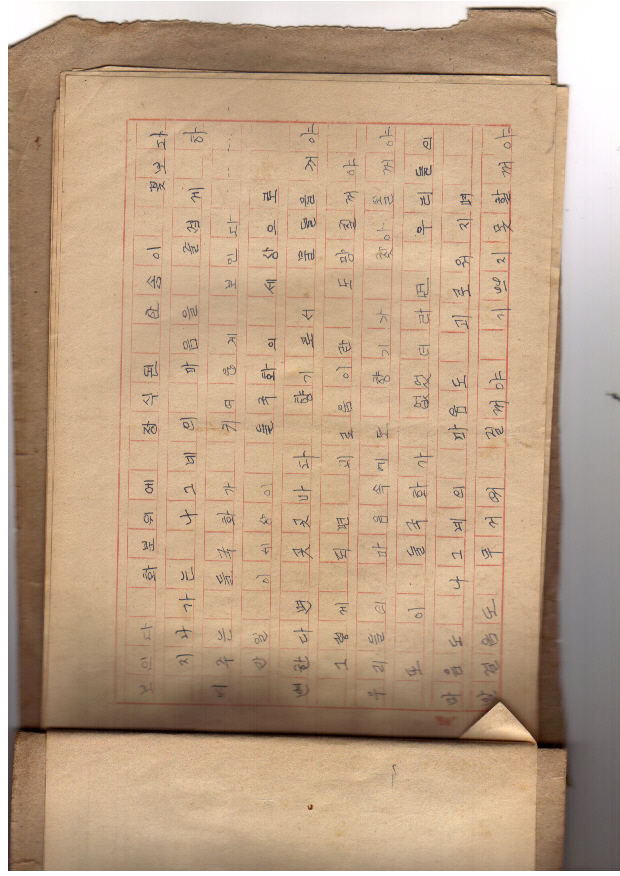 보인다 화분위에 장식된 한송이 꽃보다
지나가는 나그네의 마음을 즐겁게 하
여주는 들국화가 귀여웁게 보인다 ......
만일 이세상이 들국화의 세상으로
변한다면 곳곳마다 향기로서 물들을꺼야
그렇게 되면 괴로움이란 도망칠꺼야
우리들의 마음속에도 향기가 찾아올꺼야
또 이 들국화가 없었더라면 우리들의
마음도 나그네의 마음도 괴로워지며
발걸음도 무거워질꺼야 기쁘지못할꺼야